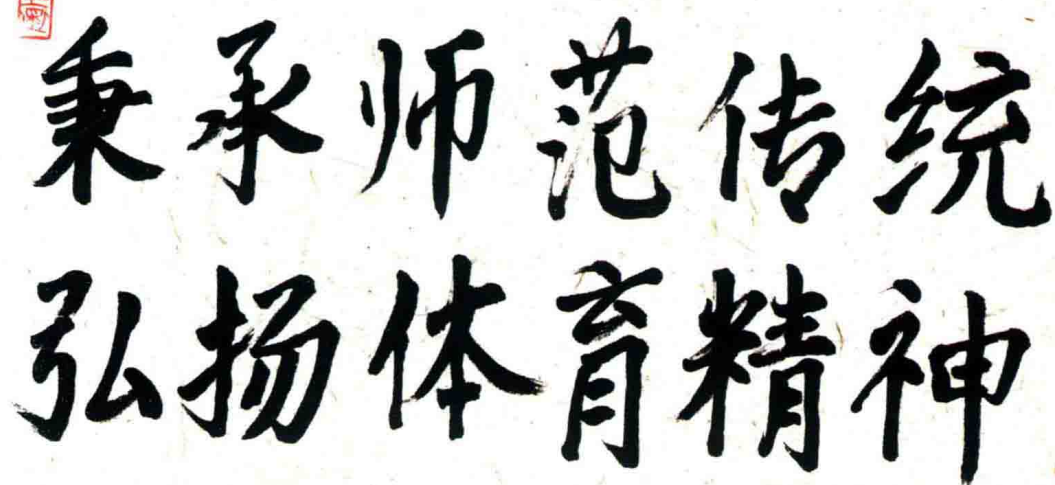 秉承师范传统
弘扬体育精神